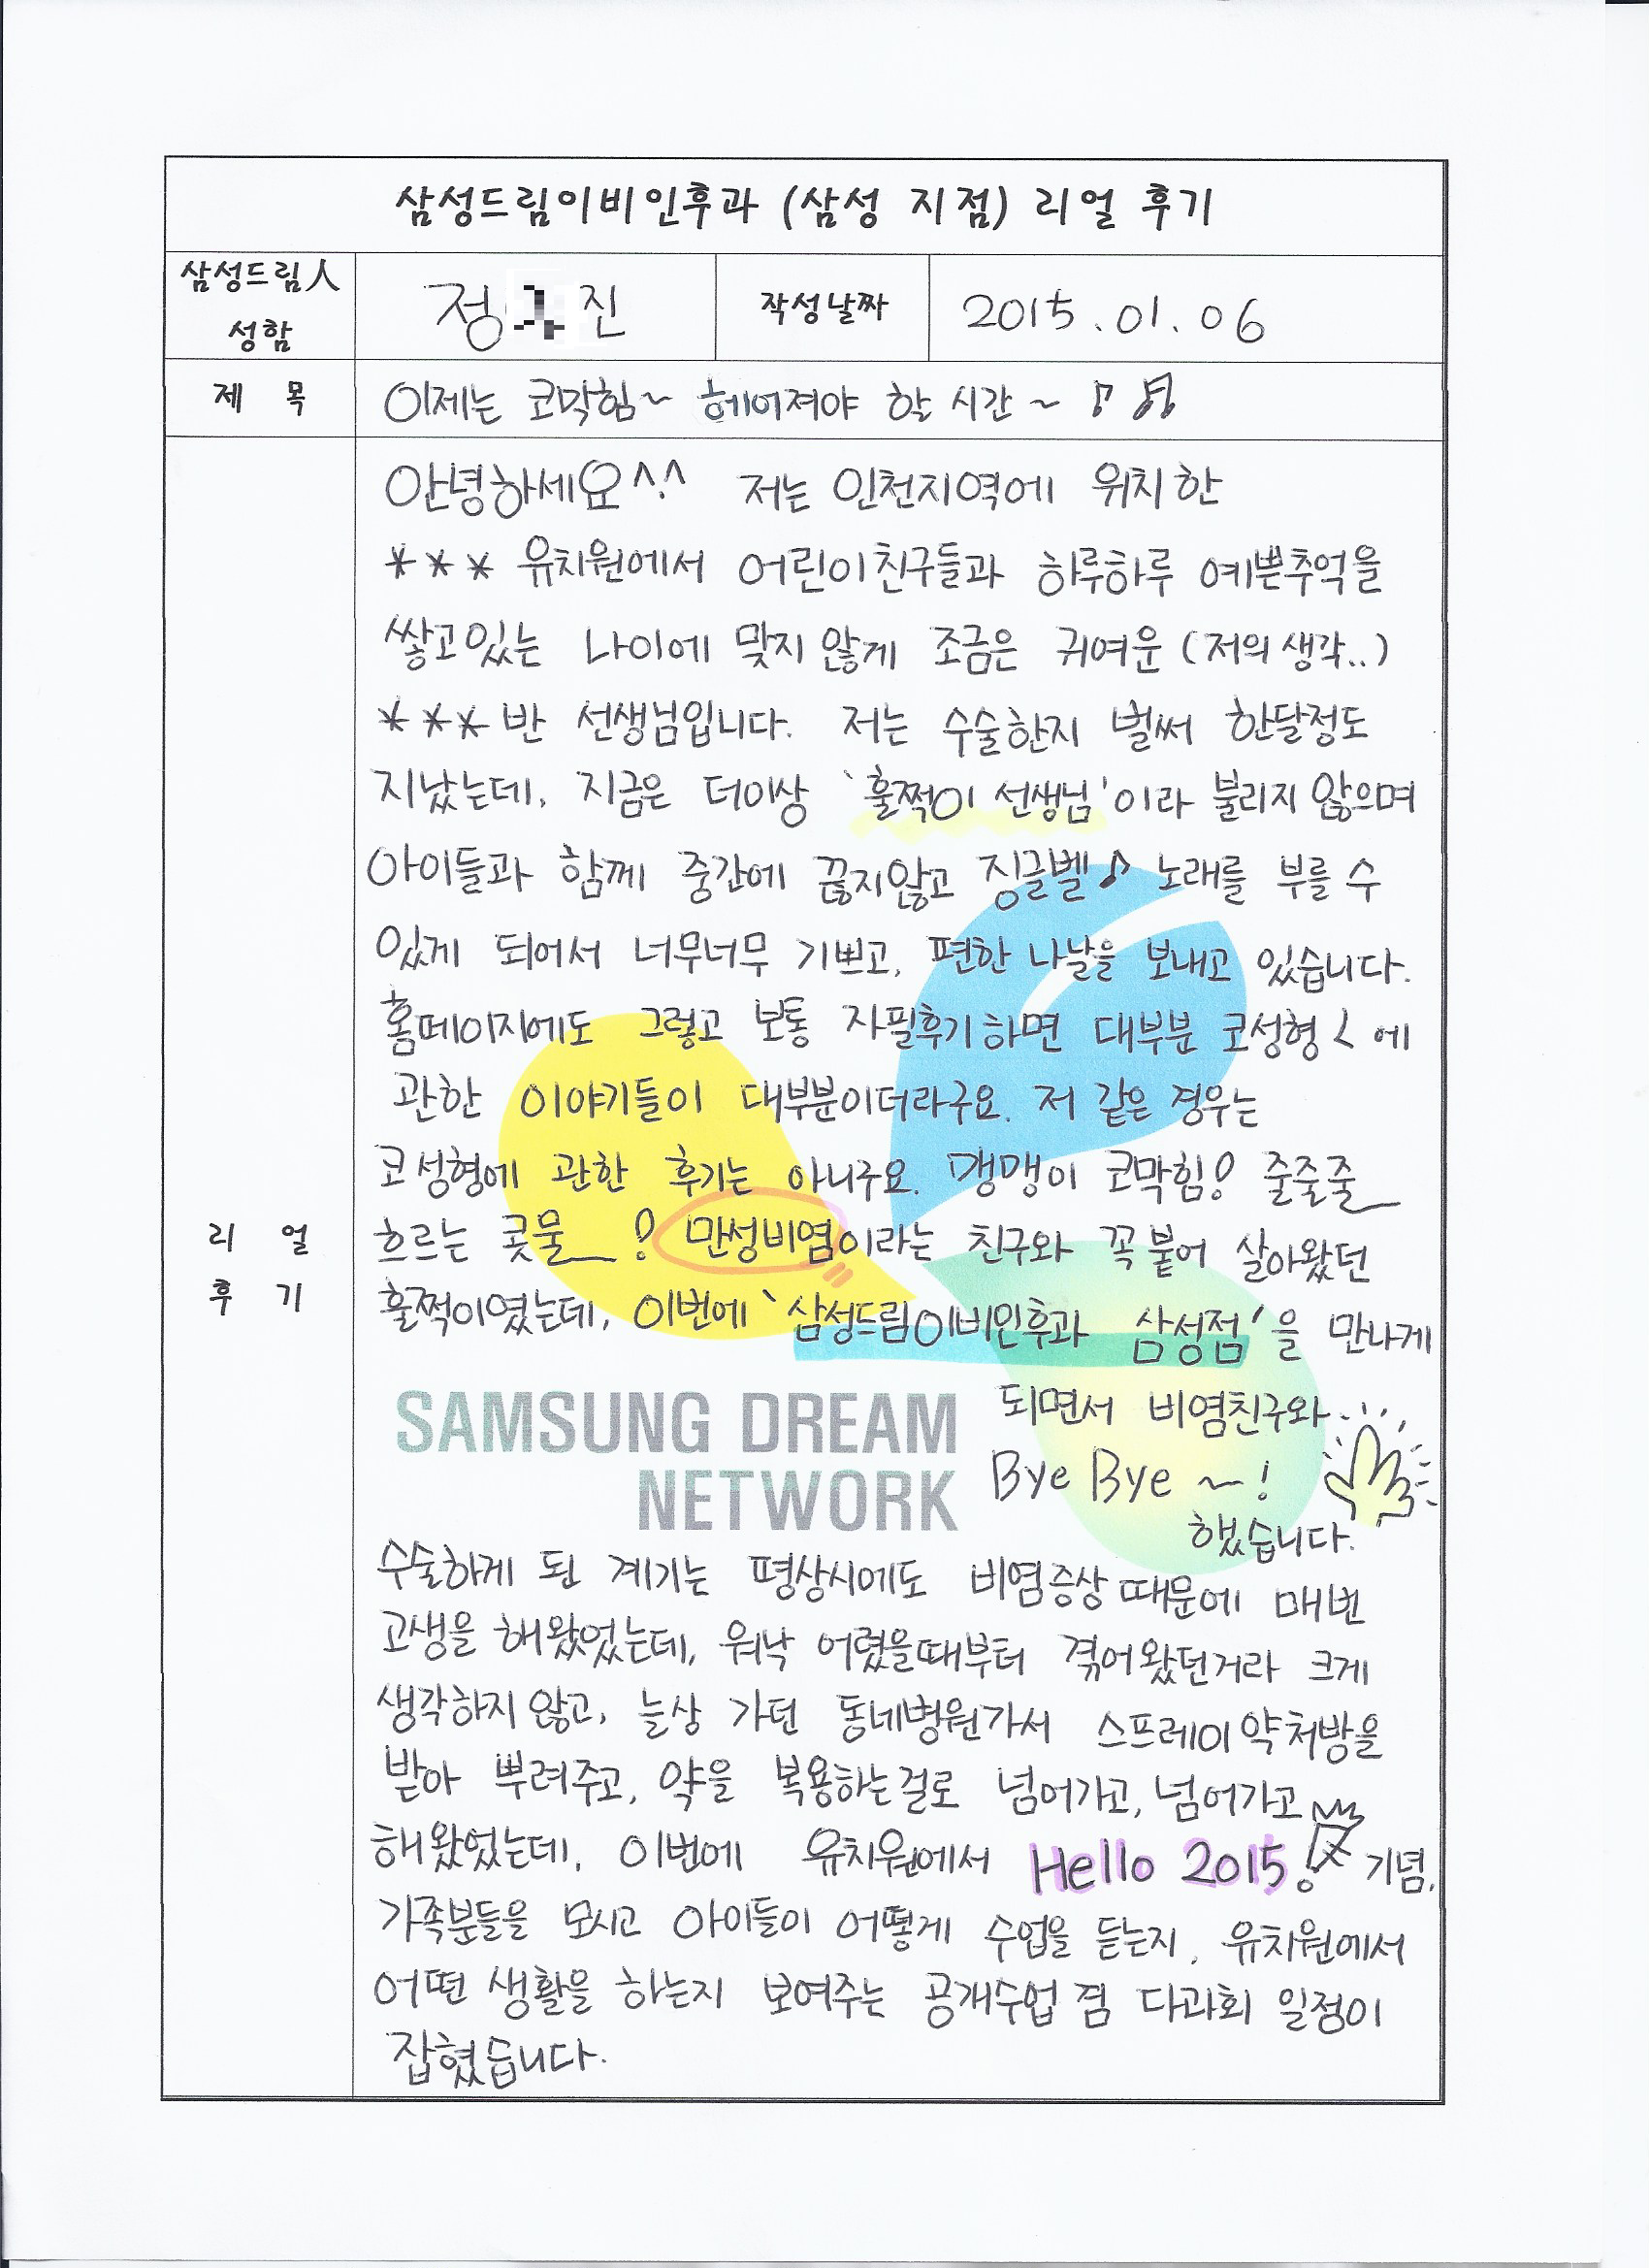 삼성드림이비인후과 (삼성 지점) 리얼 후기
삼성드림人 성함
정 진
작성날짜
2015.01.06
제 목
이제는 코막힘~ 헤어져야 할 시간~ ♪ ♬
리 얼 후 기
안녕하세요^.^ 저는 인천지역에 위치한
*** 유치원에서 어린이친구들과 하루하루 예쁜추억을
쌓고있는 나이에 맞지 않게 조금은 귀여운 (저의 생각..)
***반 선생님입니다. 저는 수술한지 벌써 한달정도
지났는데, 지금은 더이상 '훌쩍이 선생님'이라 불리지 않으며
아이들과 함께 중간에 끊지않고 징글벨♪ 노래를 부를 수
있게 되어서 너무너무 기쁘고, 편한 나날을 보내고 있습니다.
홈페이지에도 그렇고 보통 자필후기하면 대부분 코성형<에
관한 이야기들이 대부분이더라구요. 저 같은 경우는
코성형에 관한 후기는 아니구요. 맹맹이 코막힘! 줄줄줄_
흐르는 콧물_! 만성비염이라는 친구와 꼭 붙어 살아왔던
훌쩍이였는데, 이번에 '삼성드림이비인후과 삼성점'을 만나게
되면서 비염친구와
Bye Bye ~!
했습니다.
SAMSUNG DREAM
NETWORK
수술하게 된 계기는 평상시에도 비염증상때문에 매번
고생을 해왔었는데, 워낙 어렸을때부터 겪어왔던거라 크게
생각하지 않고, 늘상 가던 동네병원가서 스프레이약처방을
받아 뿌려주고, 약을 복용하는걸로 넘어가고, 넘어가고
해왔었는데, 이번에 유치원에서 Hello 2015! 기념,
가족분들을 모시고 아이들이 어떻게 수업을 듣는지, 유치원에서
어떤 생활을 하는지 보여주는 공개수업 겸 다과회 일정이
잡혔습니다.